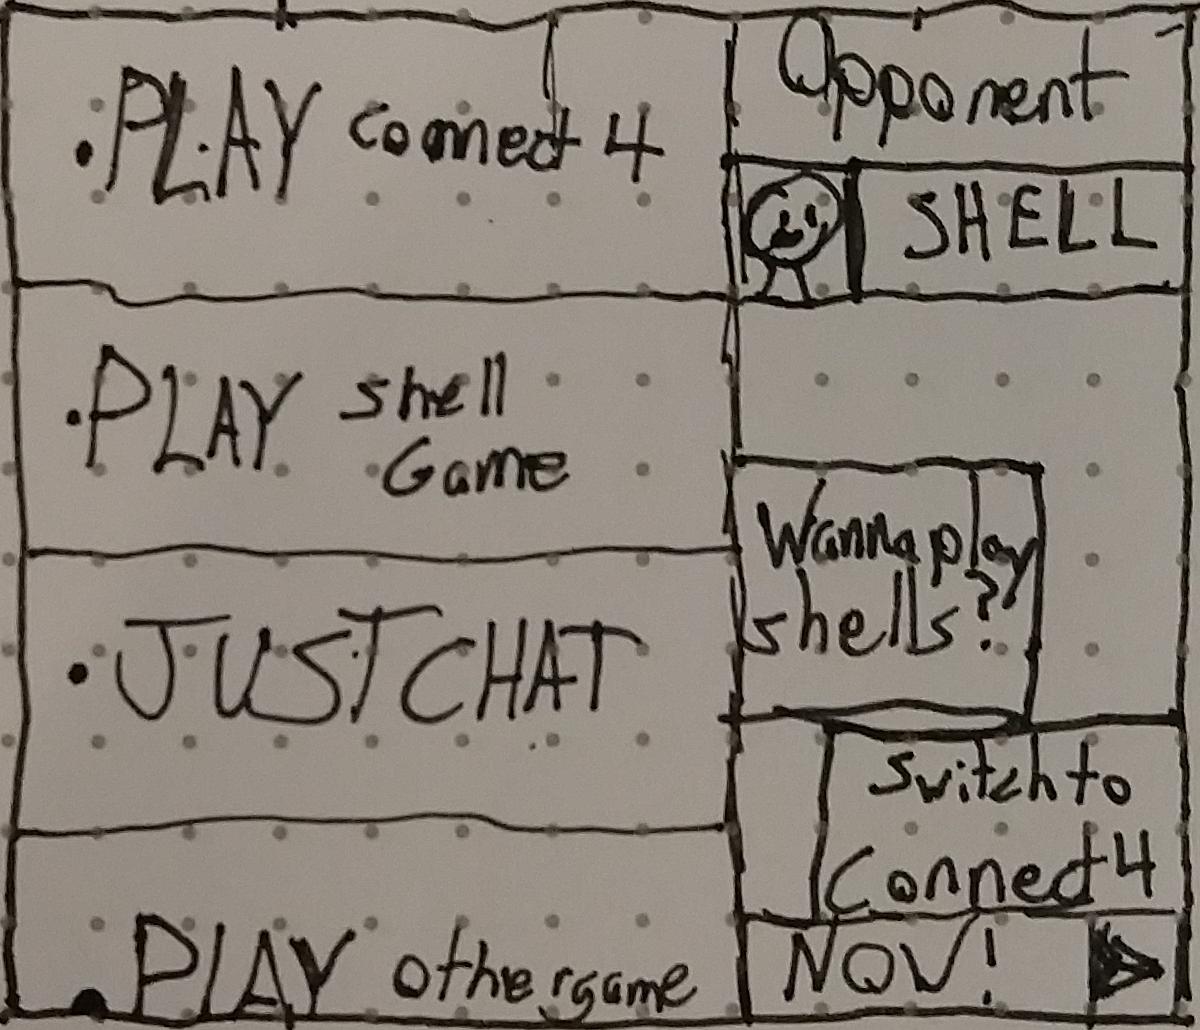 • PLAY connect 4
• PLAY shell
Game
• JUST CHAT
• PLAY other game
Opponent
SHELL
Wanna play
shells?
Switch to
Connect 4
NOW!